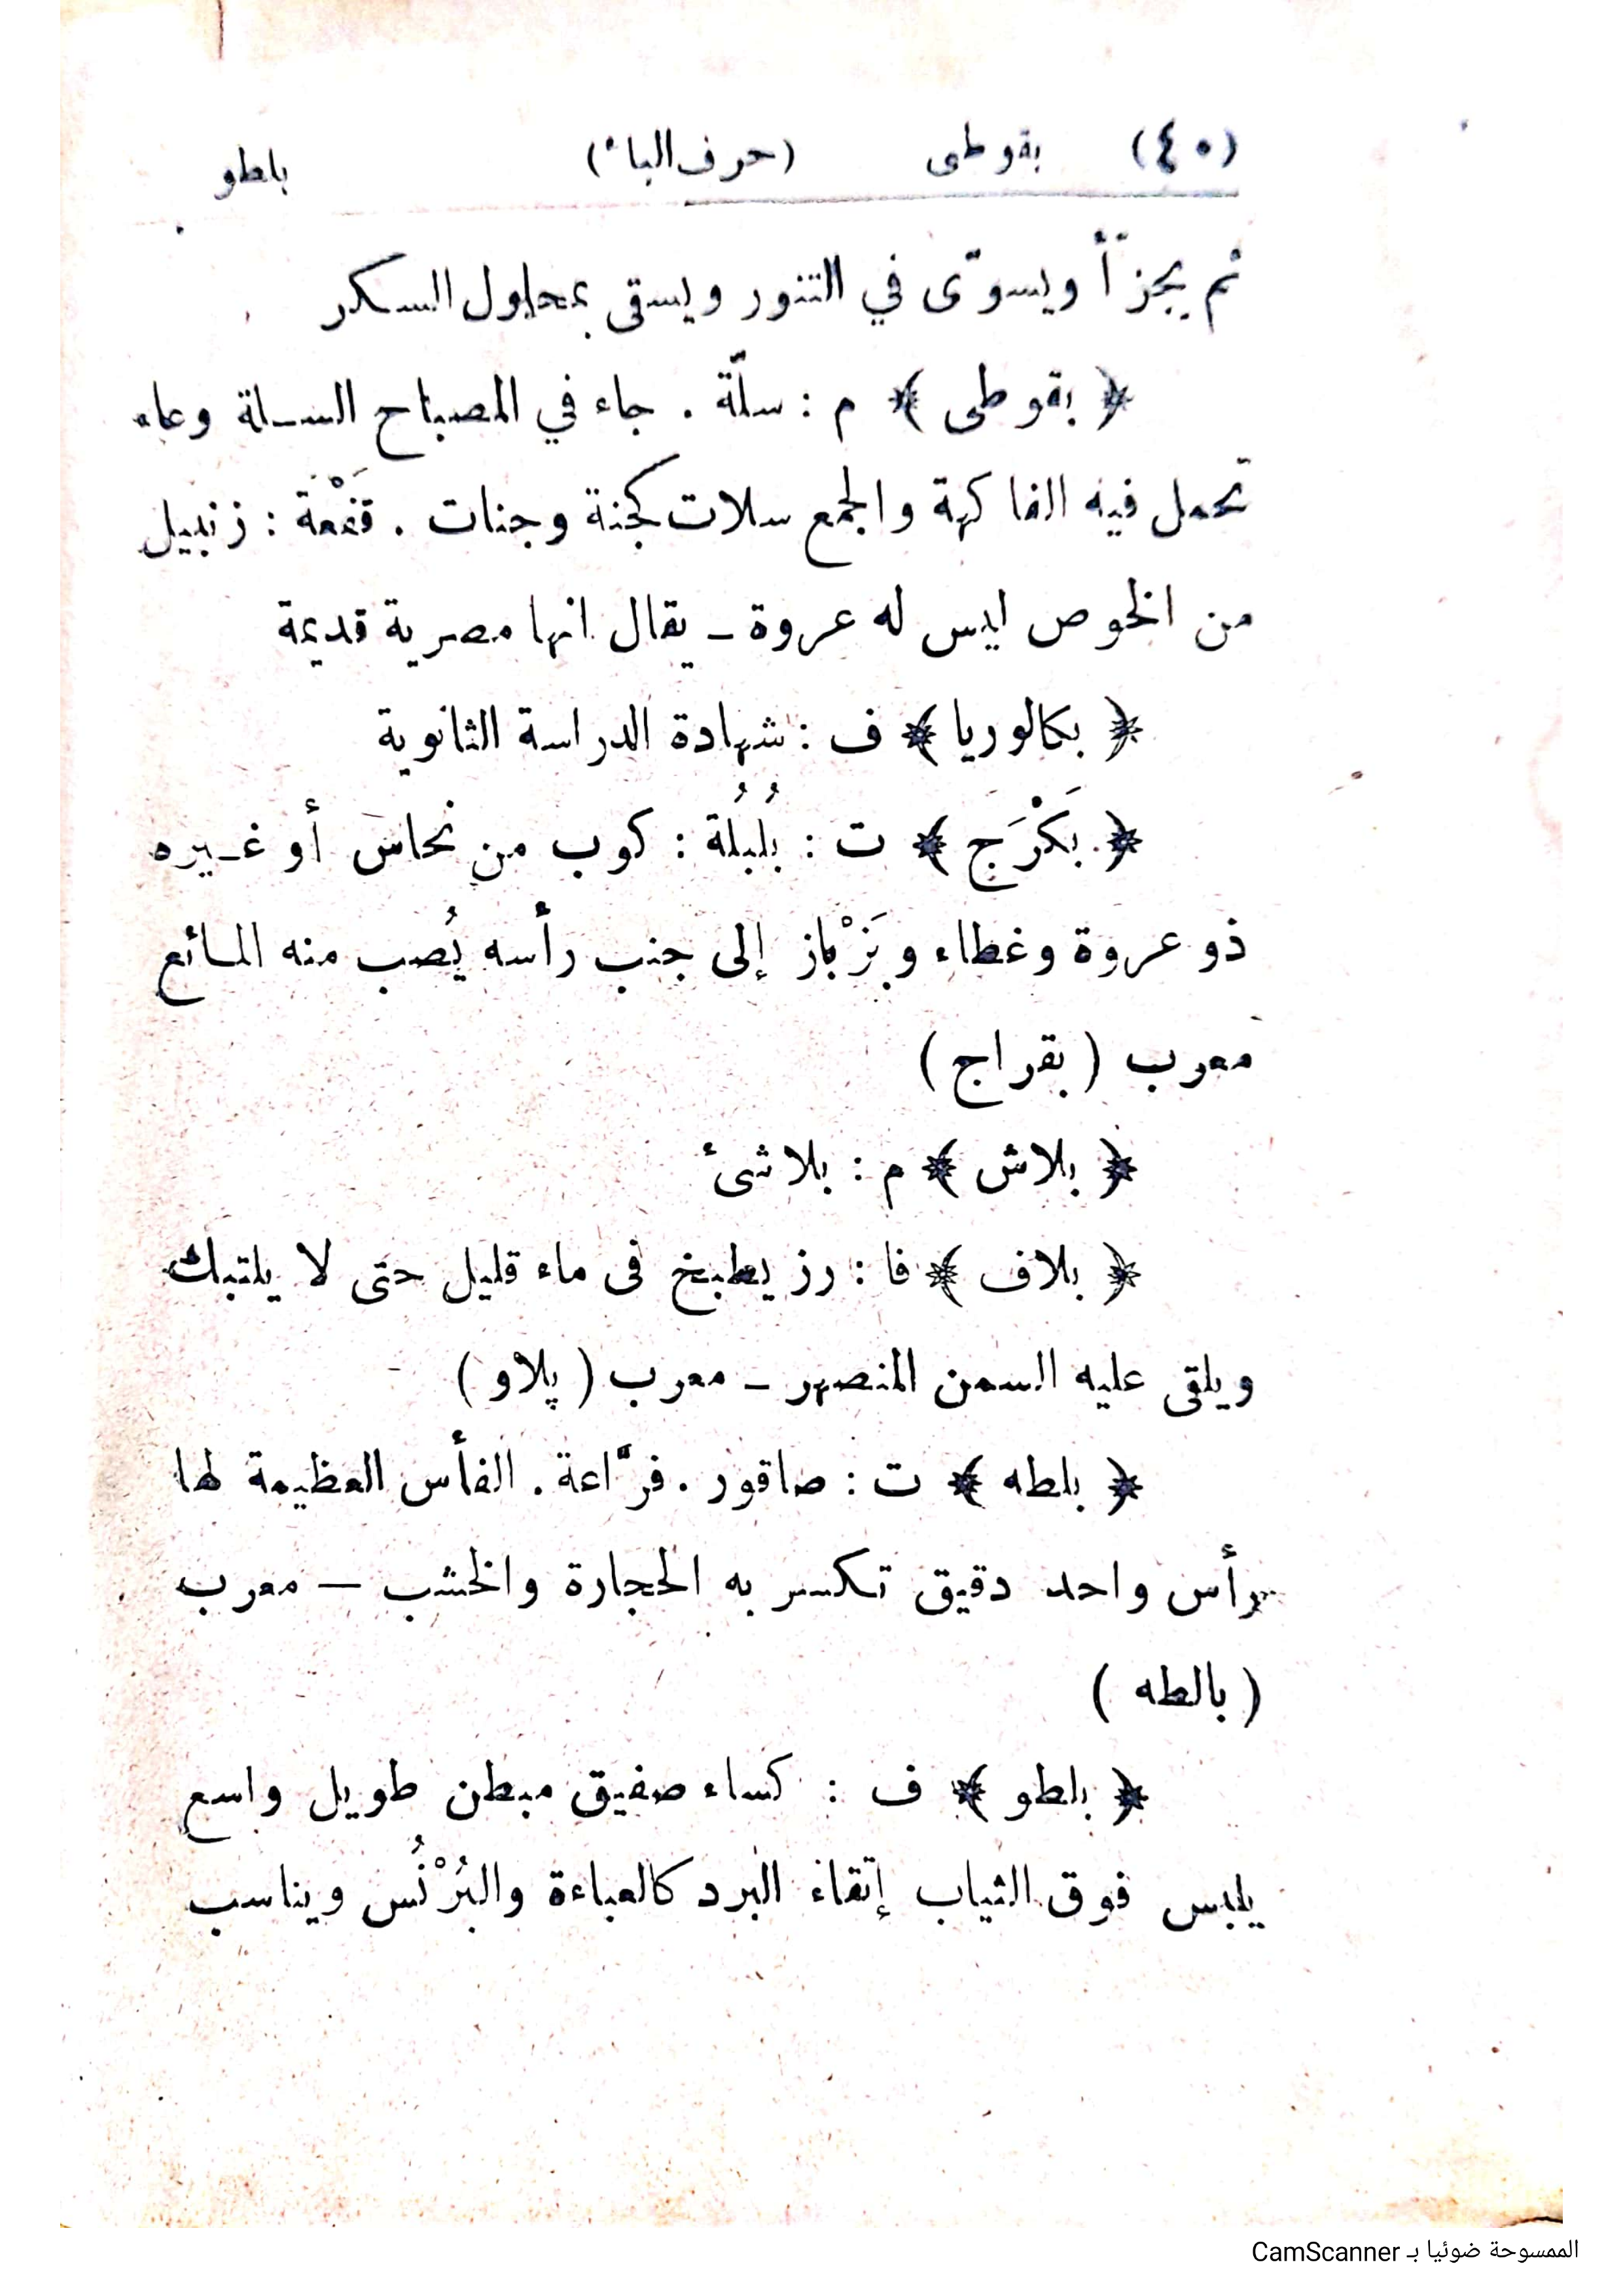 (٤٠) بقوطى (حرف الباء) بلطو
ثم يجزّأ ويسوّى في التنور ويسقى بمحلول السكر
﴿ بقوطى ﴾ م : سلّة . جاء في المصباح السلة وعاء
تحمل فيه الفاكهة والجمع سلات كجنة وجنات . قَفْعَة : زنبيل
من الخوص ليس له عروة – يقال انها مصرية قديمة
﴿ بكالوريا ﴾ ف : شهادة الدراسة الثانوية
﴿ بَكْرَج ﴾ ت : بُلبُلة : كوب من نحاس أو غيره
ذو عروة وغطاء وبَزْباز إلى جنب رأسه يُصب منه المائع
معرب ( بقراج )
﴿ بلاش ﴾ م : بلا شئ
﴿ بلاف ﴾ فا : رز يطبخ فى ماء قليل حتى لا يلتبك
ويلقى عليه السمن المنصهر – معرب ( پلاو )
﴿ بلطه ﴾ ت : صاقور . فرّاعة . الفأس العظيمة لها
رأس واحد دقيق تكسر به الحجارة والخشب — معرب
( بالطه )
﴿ بلطو ﴾ ف : كساء صفيق مبطن طويل واسع
يلبس فوق الثياب إتقاء البرد كالعباءة والبُرْنُس ويناسب
الممسوحة ضوئيا بـ CamScanner